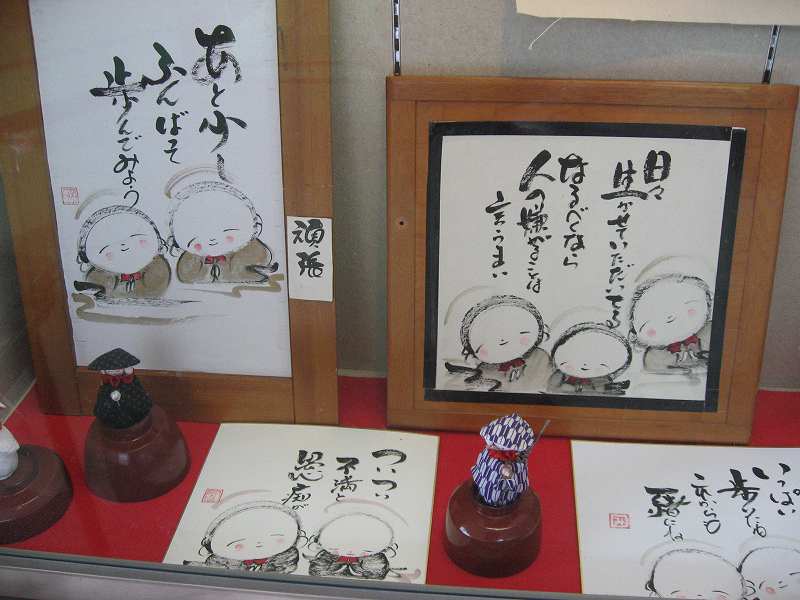 あと少し
ふんばって
歩んでみよう
頑張
日々
生かせていただいてる
なるべくなら
人の嫌がることは
言うまい
ついつい
不満と
愚痴が
いっぱい
歩いたね
これからも
一緒にね